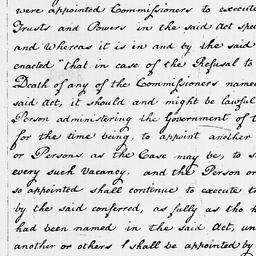 were appointed Commissioners to execute
Trusts and Powers in the said Act spe
and Whereas it is in and by the said
enacted "that in case of the Refusal to
Death of any of the Commissioners named
said Act, it should and might be lawful
Person administering the Government of t
for the time being, to appoint another
or Persons as the Case may be, to s
every such Vacancy, and the Person or
so appointed shall continue to execute t
by the said conferred, as fully as tho h
had been named in the said Act, un
another or others shall be appointed by